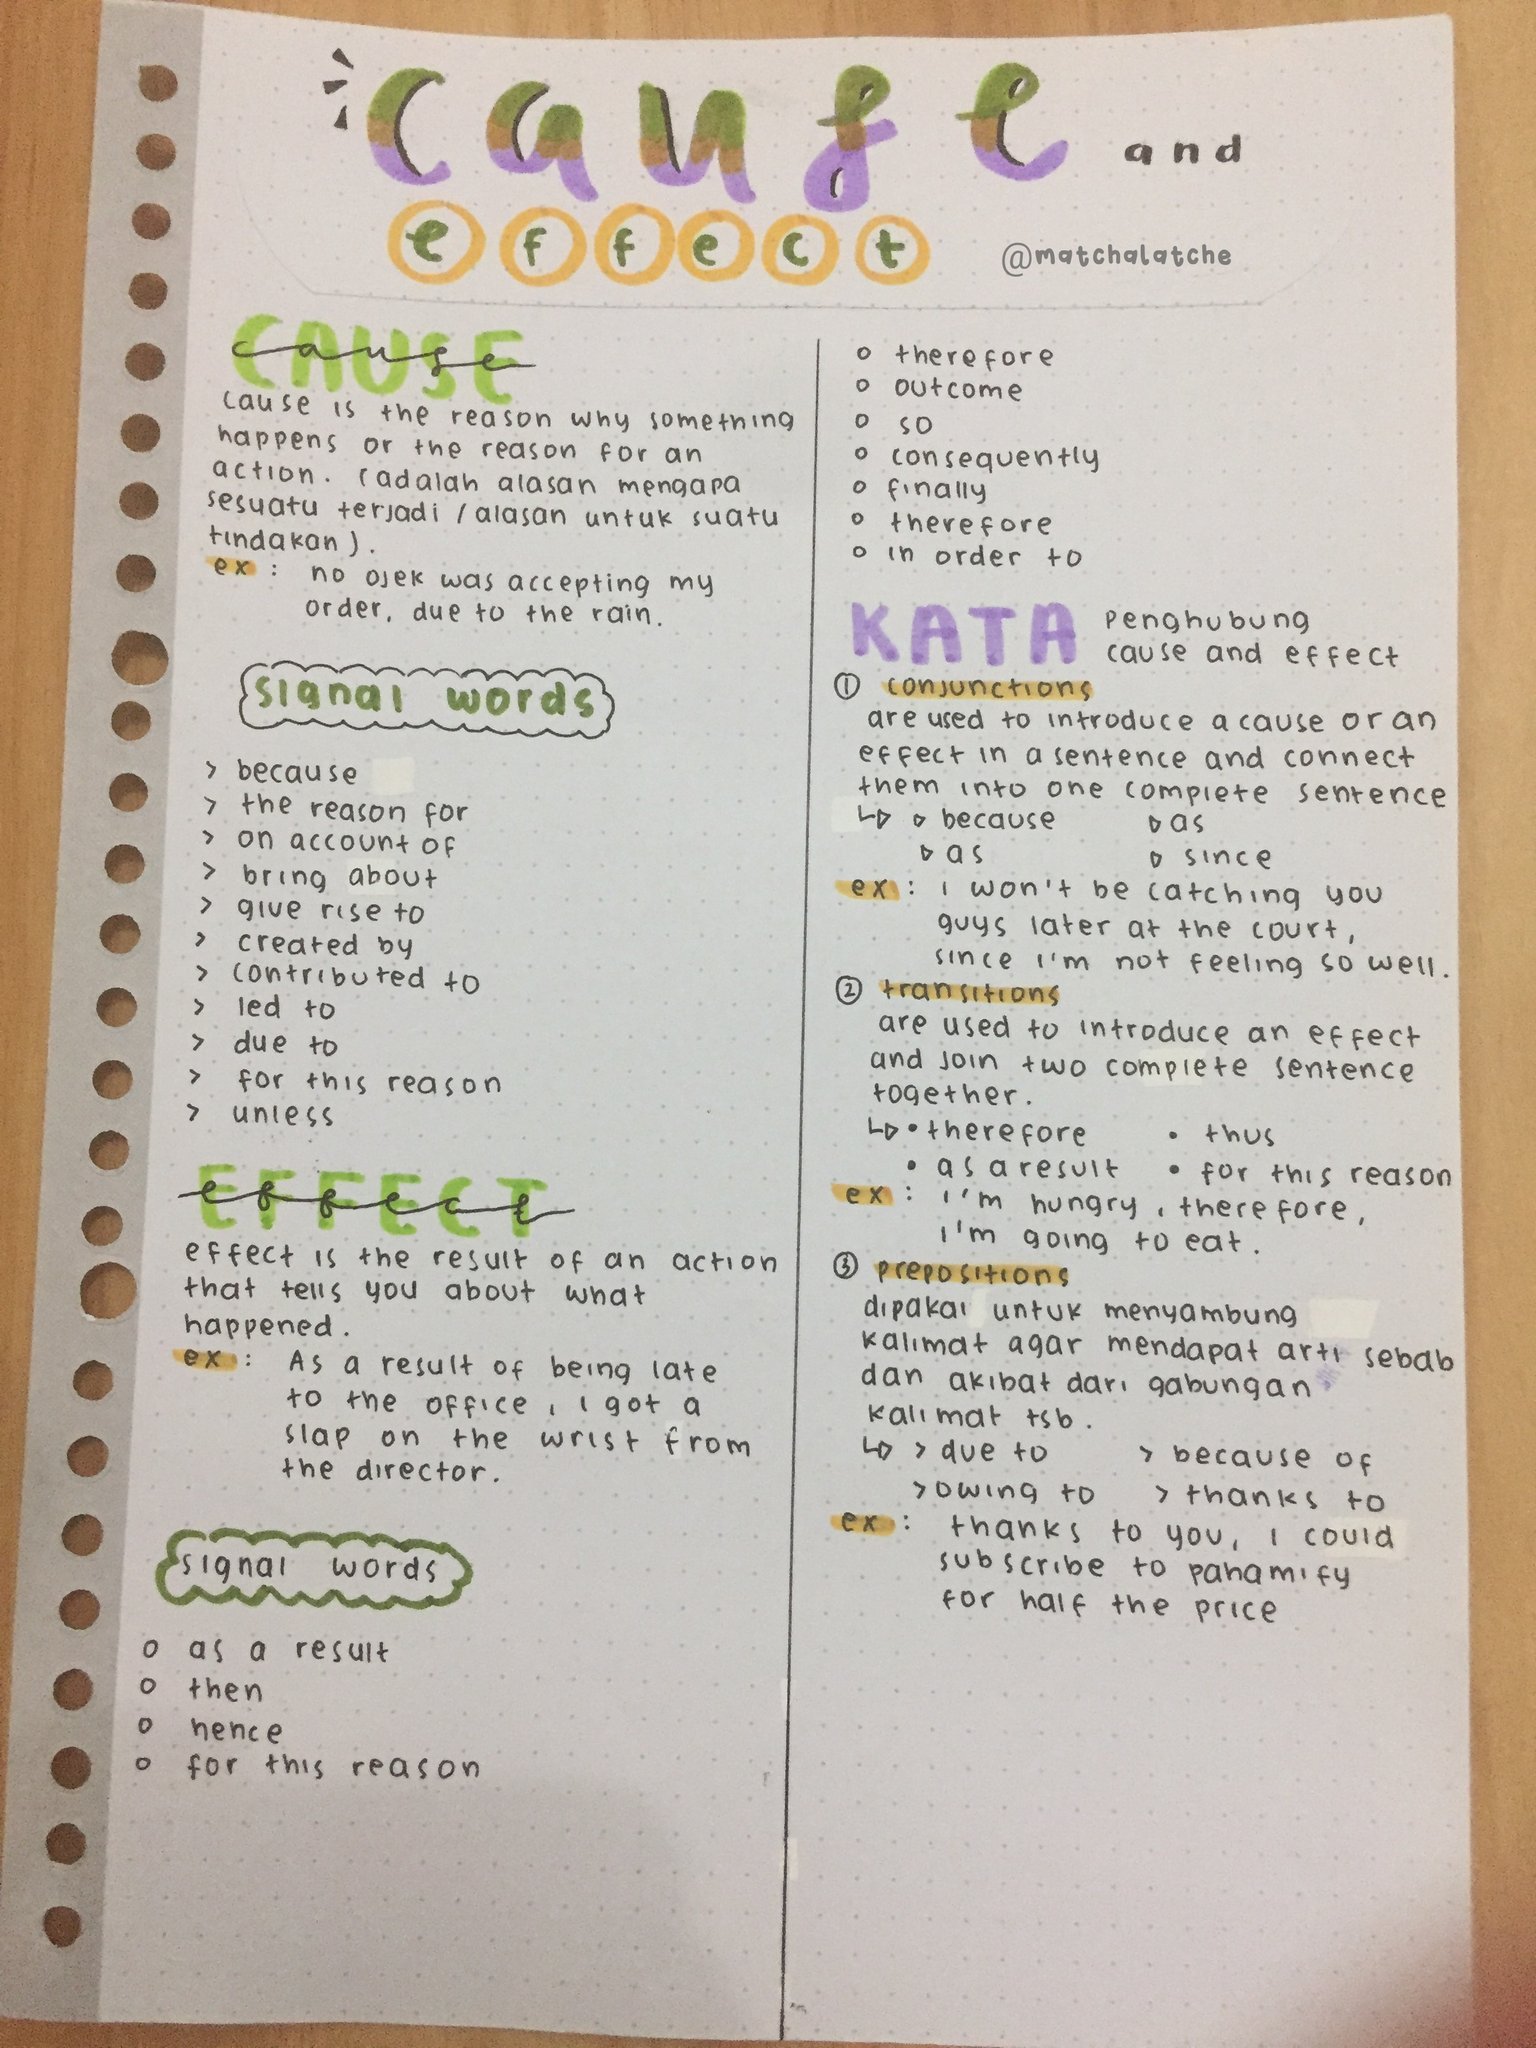 cause and
effect
@matchalatche
CAUSE
cause
cause is the reason why something
happens or the reason for an
action. (adalah alasan mengapa
sesuatu terjadi / alasan untuk suatu
tindakan).
ex : no ojek was accepting my
order, due to the rain.
signal words
> because
> the reason for
> on account of
> bring about
> give rise to
> created by
> contributed to
> led to
> due to
> for this reason
> unless
EFFECT
effect
effect is the result of an action
that tells you about what
happened.
ex : As a result of being late
to the office, i got a
slap on the wrist from
the director.
signal words
o as a result
o then
o hence
o for this reason
o therefore
o outcome
o so
o consequently
o finally
o therefore
o in order to
KATA penghubung
cause and effect
① conjunctions
are used to introduce a cause or an
effect in a sentence and connect
them into one complete sentence
↳ ▹ because ▹ as
▹ as ▹ since
ex : i won't be catching you
guys later at the court,
since i'm not feeling so well.
② transitions
are used to introduce an effect
and join two complete sentence
together.
↳ • therefore • thus
• as a result • for this reason
ex : i'm hungry, therefore,
i'm going to eat.
③ prepositions
dipakai untuk menyambung
kalimat agar mendapat arti sebab
dan akibat dari gabungan
kalimat tsb.
↳ > due to > because of
> owing to > thanks to
ex : thanks to you, i could
subscribe to pahamify
for half the price